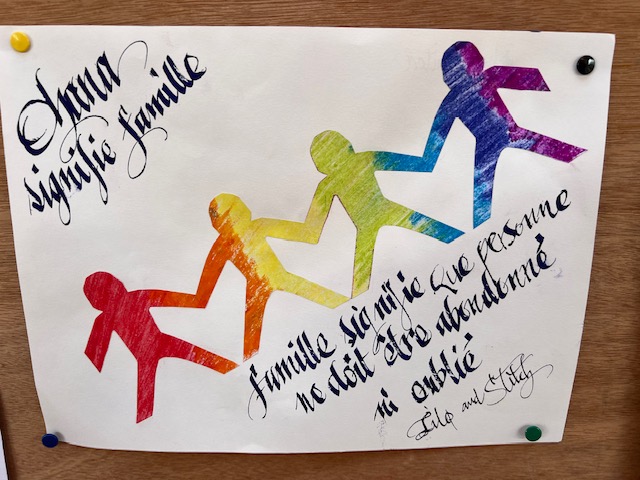 Ohana
signifie famille
famille signifie que personne
ne doit être abandonné
ni oublié
Lilo and Stitch